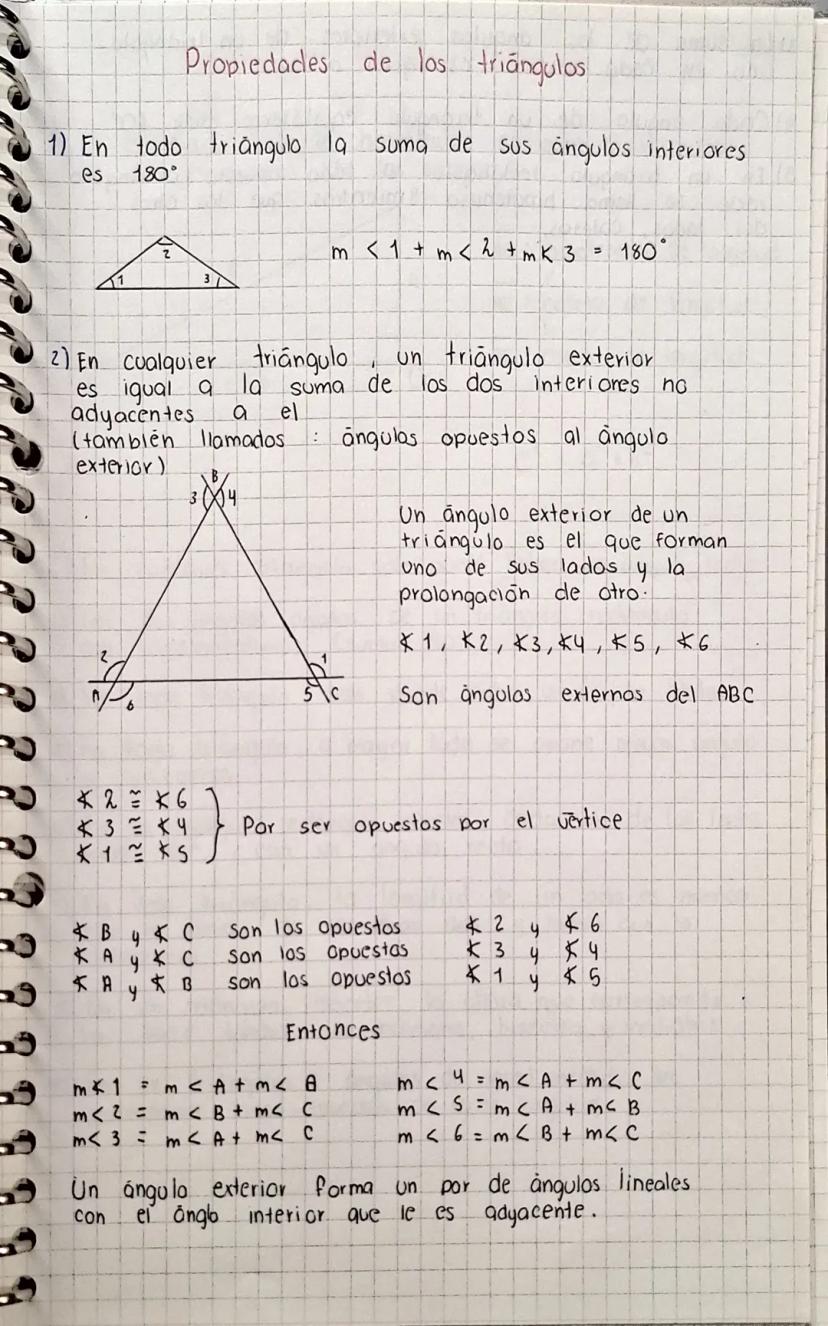 Propiedades de los triángulos
1) En todo triángulo la suma de sus ángulos interiores
es 180°
2
1
3
m < 1 + m < 2 + m < 3 = 180°
2) En cualquier triángulo, un triángulo exterior
es igual a la suma de los dos interiores no
adyacentes a el
(también llamados : ángulos opuestos al ángulo
exterior)
B
3 4
2
1
A
6
5 C
Un ángulo exterior de un
triángulo es el que forman
uno de sus lados y la
prolongación de otro.
∢1, ∢2, ∢3, ∢4, ∢5, ∢6
Son ángulos externos del ABC
∢ 2 ≅ ∢ 6
∢ 3 ≅ ∢ 4
∢ 1 ≅ ∢ 5
} Por ser opuestos por el vértice
∢ B y ∢ C son los opuestos ∢ 2 y ∢ 6
∢ A y ∢ C son los opuestos ∢ 3 y ∢ 4
∢ A y ∢ B son los opuestos ∢ 1 y ∢ 5
Entonces
m∢1 = m < A + m < B
m < 2 = m < B + m < C
m < 3 = m < A + m < C
m < 4 = m < A + m < C
m < 5 = m < A + m < B
m < 6 = m < B + m < C
Un ángulo exterior forma un par de ángulos lineales
con el ánglo interior que le es adyacente.